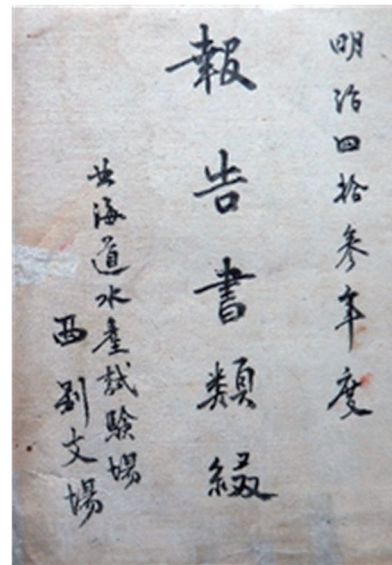 明治四拾参年度
報告書類綴
北海道水産試験場
西別分場